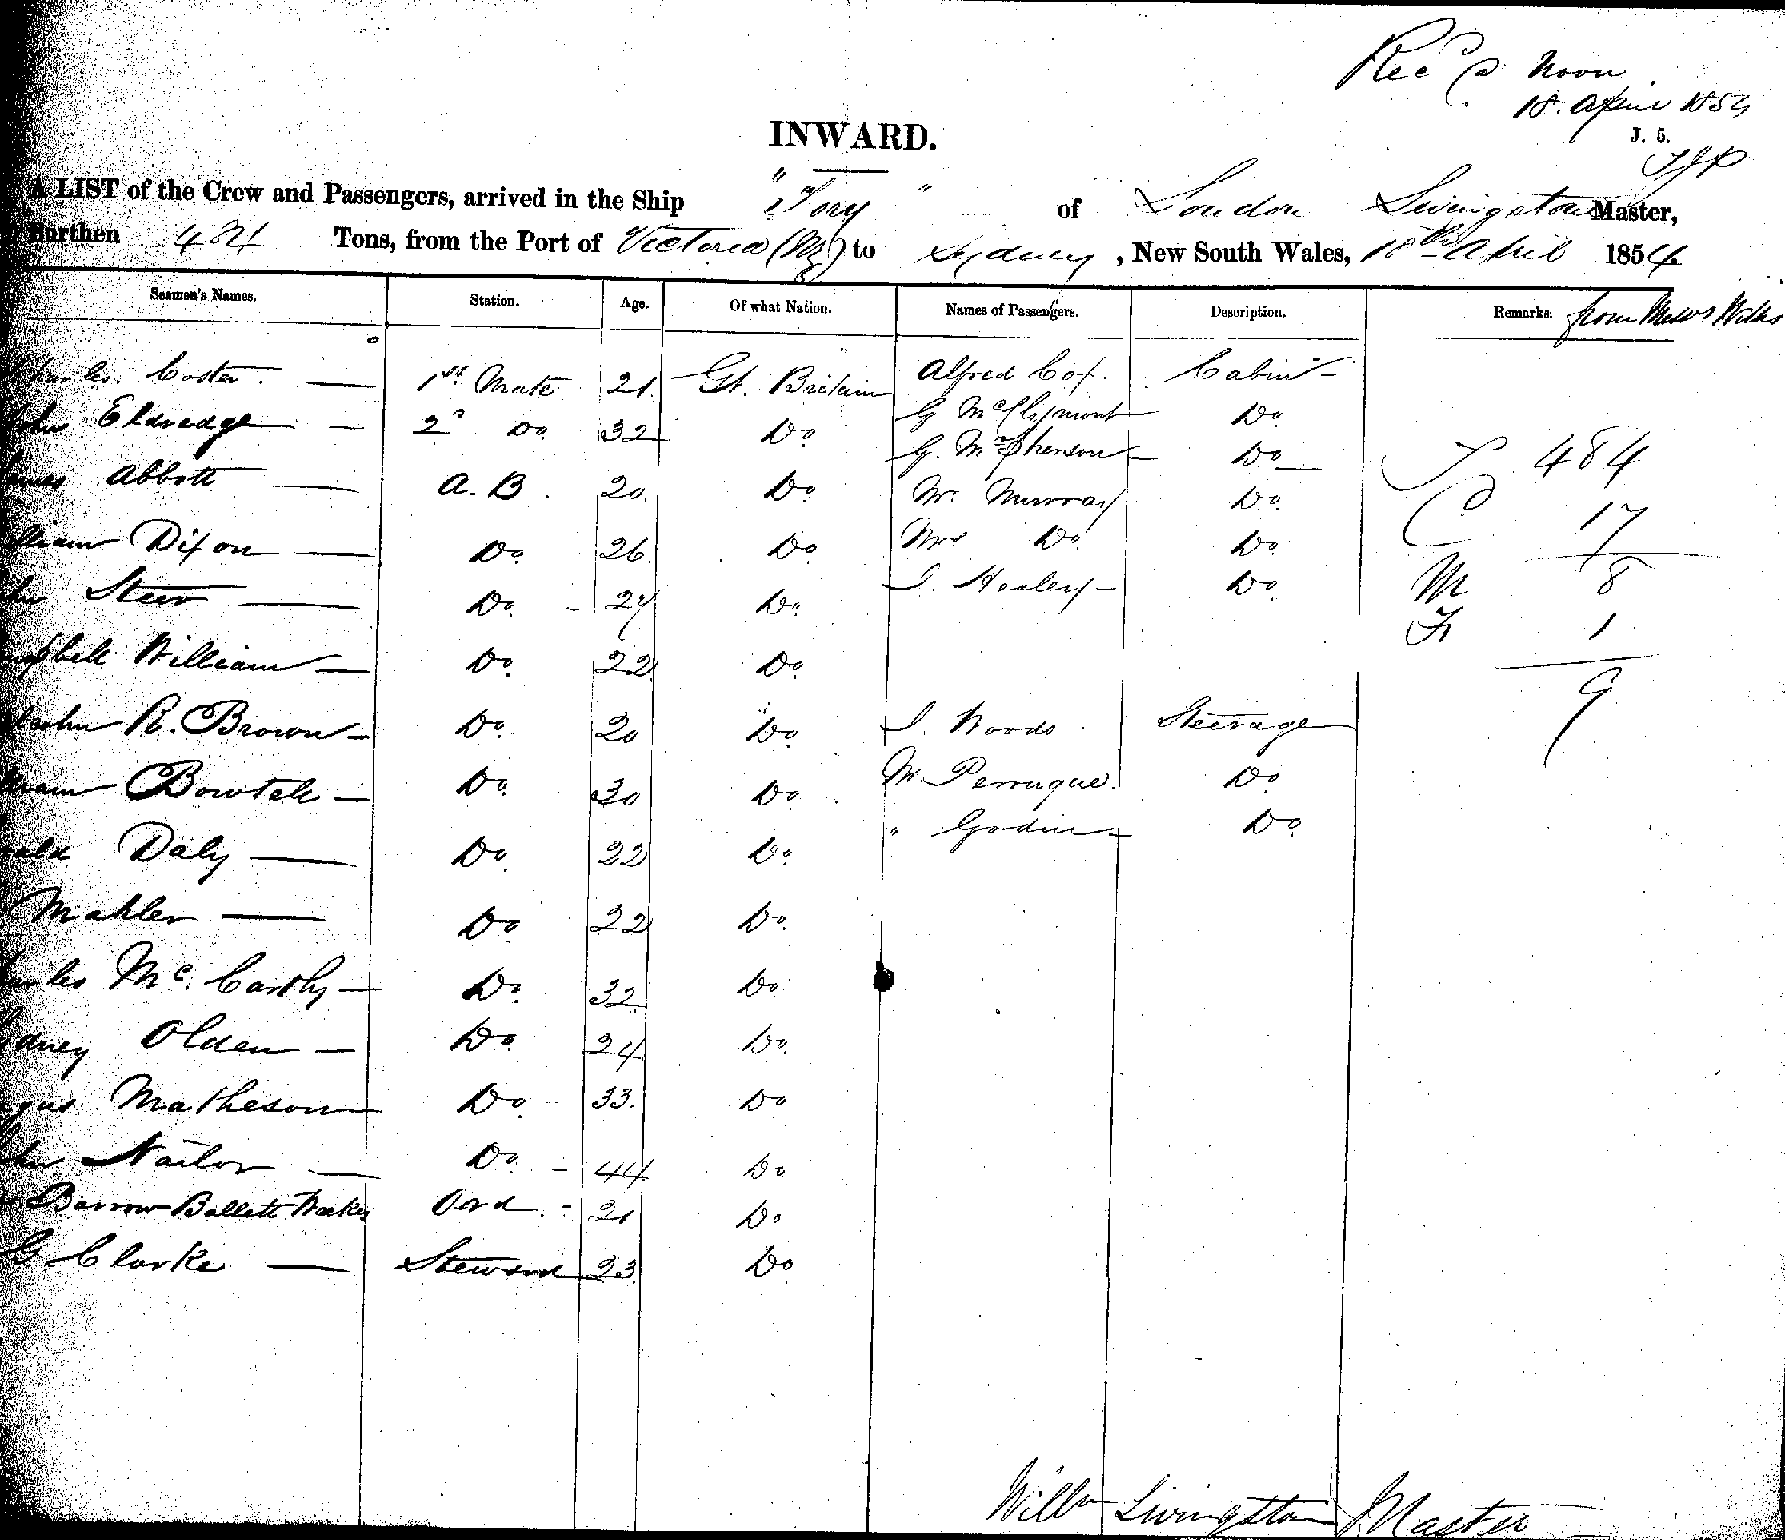 Recd @ Noon
18. April 1854
J. 5.
INWARD.
A LIST of the Crew and Passengers, arrived in the Ship "Tory" of London Livingston Master,
Burthen 484 Tons, from the Port of Victoria to Sydney, New South Wales, 18th April 1854
Seamen's Names. Station. Age. Of what Nation. Names of Passengers. Description. Remarks. from
Charles Coster 1st Mate 21. Gt. Britain Alfred Cox. Cabin
John Eldredge 2d Do 32 Do G McClymont Do
James Abbott A.B. 20. Do G. McPherson Do
484
William Dixon Do 26 Do Mr. Murray Do
17
Mrs Do Do
M 8
John Steer Do 27 Do J. Healey Do
F 1
Campbell William Do 22 Do
9
R. Brown Do 20 Do J. Woods Steerage
William Bowtell Do 30 Do M Perruque Do
Daly Do 22 Do " Godin Do
Mahler Do 22 Do
Charles McCarthy Do 32 Do
Sydney Olden Do 24 Do
Angus Matheson Do 33. Do
John Nailor Do 44 Do
Barrow Ballett Ord 21 Do
G Clarke Steward 23 Do
Willm Livingston Master